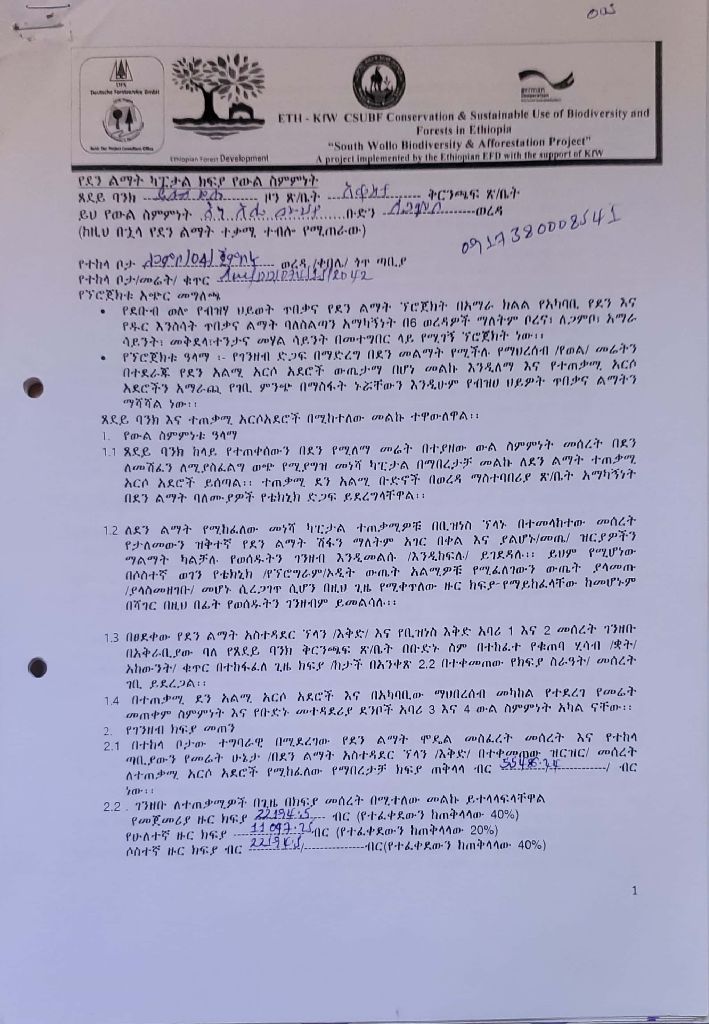 DFS
Deutsche Forstservice GmbH
Ethiopian Forest Development
ETH - KfW CSUBF Conservation & Sustainable Use of Biodiversity and
Forests in Ethiopia
"South Wollo Biodiversity & Afforestation Project"
A project implemented by the Ethiopian EFD with the support of KfW
የደን ልማት ካፒታል ክፍያ የውል ስምምነት
ጸደይ ባንክ ዞን ጽ/ቤት ቅርንጫፍ ጽ/ቤት
ይህ የውል ስምምነት ቡድን ወረዳ
(ከዚህ በኋላ የደን ልማት ተቃሚ ተብሎ የሚጠራው)
የተከላ ቦታ ወረዳ /ቀበሌ/ ጎጥ ጣቢያ
የተከላ ቦታ/መሬት/ ቁጥር
የፕሮጀክቱ አጭር መግለጫ
• የደቡብ ወሎ የብዝሃ ህይወት ጥበቃና የደን ልማት ፕሮጀክት በአማራ ክልል የአካባቢ የደን እና
የዱር እንስሳት ጥበቃና ልማት ባለስልጣን አማካኝነት በ6 ወረዳዎች ማለትም ቦረና፣ ለጋምቦ፣ አማራ
ሳይንት፣ መቅደላ፣ተንታና መሃል ሳይንት በመተግበር ላይ የሚገኝ ፕሮጀክት ነው፡፡
• የፕሮጀክቱ ዓላማ ፡- የገንዘብ ድጋፍ በማድረግ በደን መልማት የሚችሉ የማህረሰብ /የወል/ መሬትን
በተደራጁ የደን አልሚ አርሶ አደሮች ውጤታማ በሆነ መልኩ እንዲለማ እና የተጠቃሚ አርሶ
አደሮችን አማራጪ የገቢ ምንጭ በማስፋት ኑሯቸውን እንዲሁም የብዝሀ ህይዎት ጥበቃና ልማትን
ማሻሻል ነው፡፡
ጸደይ ባንክ እና ተጠቃሚ አርሶአደሮች በሚከተለው መልኩ ተዋውለዋል፡፡
1. የውል ስምምነቱ ዓላማ
1.1 ጸደይ ባንክ ከላይ የተጠቀሰውን በደን የሚለማ መሬት በተያዘው ውል ስምምነት መሰረት በደን
ለመሸፈን ለሚያስፈልግ ወጭ የሚያግዝ መነሻ ካፒታል በማበረታቻ መልኩ ለደን ልማት ተጠቃሚ
አርሶ አደሮች ይሰጣል፡፡ ተጠቃሚ ደን አልሚ ቡድኖች በወረዳ ማስተባበሪያ ጽ/ቤት አማካኝነት
በደን ልማት ባለሙያዎች የቴክኒክ ድጋፍ ይደረግላቸዋል፡፡
1.2 ለደን ልማት የሚከፈለው መነሻ ካፒታል ተጠቃሚዎቹ በቢዝነስ ፕላኑ በተመላከተው መሰረት
የታለመውን ዝቅተኛ የደን ልማት ሽፋን ማለትም አገር በቀል እና ያልሆኑ/መጤ/ ዝርያዎችን
ማልማት ካልቻሉ የወሰዱትን ገንዘብ እንዲመልሱ /እንዲከፍሉ/ ይገደዳሉ፡፡ ይህም የሚሆነው
በሶስተኛ ወገን የቴክኒክ /የፕሮግራም/ኦዲት ውጤት አልሚዎቹ የሚፈለገውን ውጤት ያላመጡ
/ያላስመዘገቡ/ መሆኑ ሲረጋገጥ ሲሆን በዚህ ጊዜ የሚቀጥለው ዙር ክፍያ-የማይከፈላቸው ከመሆኑም
በሻገር በዚህ በፊት የወሰዱትን ገንዘብም ይመልሳሉ፡፡
1.3 በፀደቀው የደን ልማት አስተዳደር ፕላን /እቅድ/ እና የቢዝነስ እቅድ አባሪ 1 እና 2 መሰረት ገንዘቡ
በአቅራቢያው ባለ የጸደይ ባንክ ቅርንጫፍ ጽ/ቤት በቡድኑ ስም በተከፈተ የቁጠባ ሂሳብ /ቋት/
አካውንት/ ቁጥር በተከፋፈለ ጊዜ ክፍያ /ከታች በአንቀጽ 2.2 በተቀመጠው የክፍያ ስራዓት/ መሰረት
ገቢ ይደረጋል፡፡
1.4 በተጠቃሚ ደን አልሚ አርሶ አደሮች እና በአካባቢው ማህበረሰብ መካከል የተደረገ የመሬት
መጠቀም ስምምነት እና የቡድኑ መተዳደሪያ ደንቦች አባሪ 3 እና 4 ውል ስምምነት አካል ናቸው፡፡
2. የገንዘብ ክፍያ መጠን
2.1 በተከላ ቦታው ተግባራዊ በሚደረገው የደን ልማት ሞዴል መስፈረት መሰረት እና የተከላ
ጣቢያውን የመሬት ሁኔታ /በደን ልማት አስተዳደር ፕላን /እቅድ/ በተቀመጠው ዝርዝር/ መሰረት
ለተጠቃሚ አርሶ አደሮች የሚከፈለው የማበረታቻ ክፍያ ጠቅላላ ብር / ብር
ነው፡፡
2.2 . ገንዘቡ ለተጠቃሚዎች በጊዜ በክፍያ መሰረት በሚተለው መልኩ ይተላላፍላቸዋል
የመጀመሪያ ዙር ክፍያ ብር (የተፈቀደውን ከጠቅላላው 40%)
የሁለተኛ ዙር ክፍያ ብር (የተፈቀደውን ከጠቅላላው 20%)
ሶስተኛ ዙር ክፍያ ብር ብር(የተፈቀደውን ከጠቅላላው 40%)
1